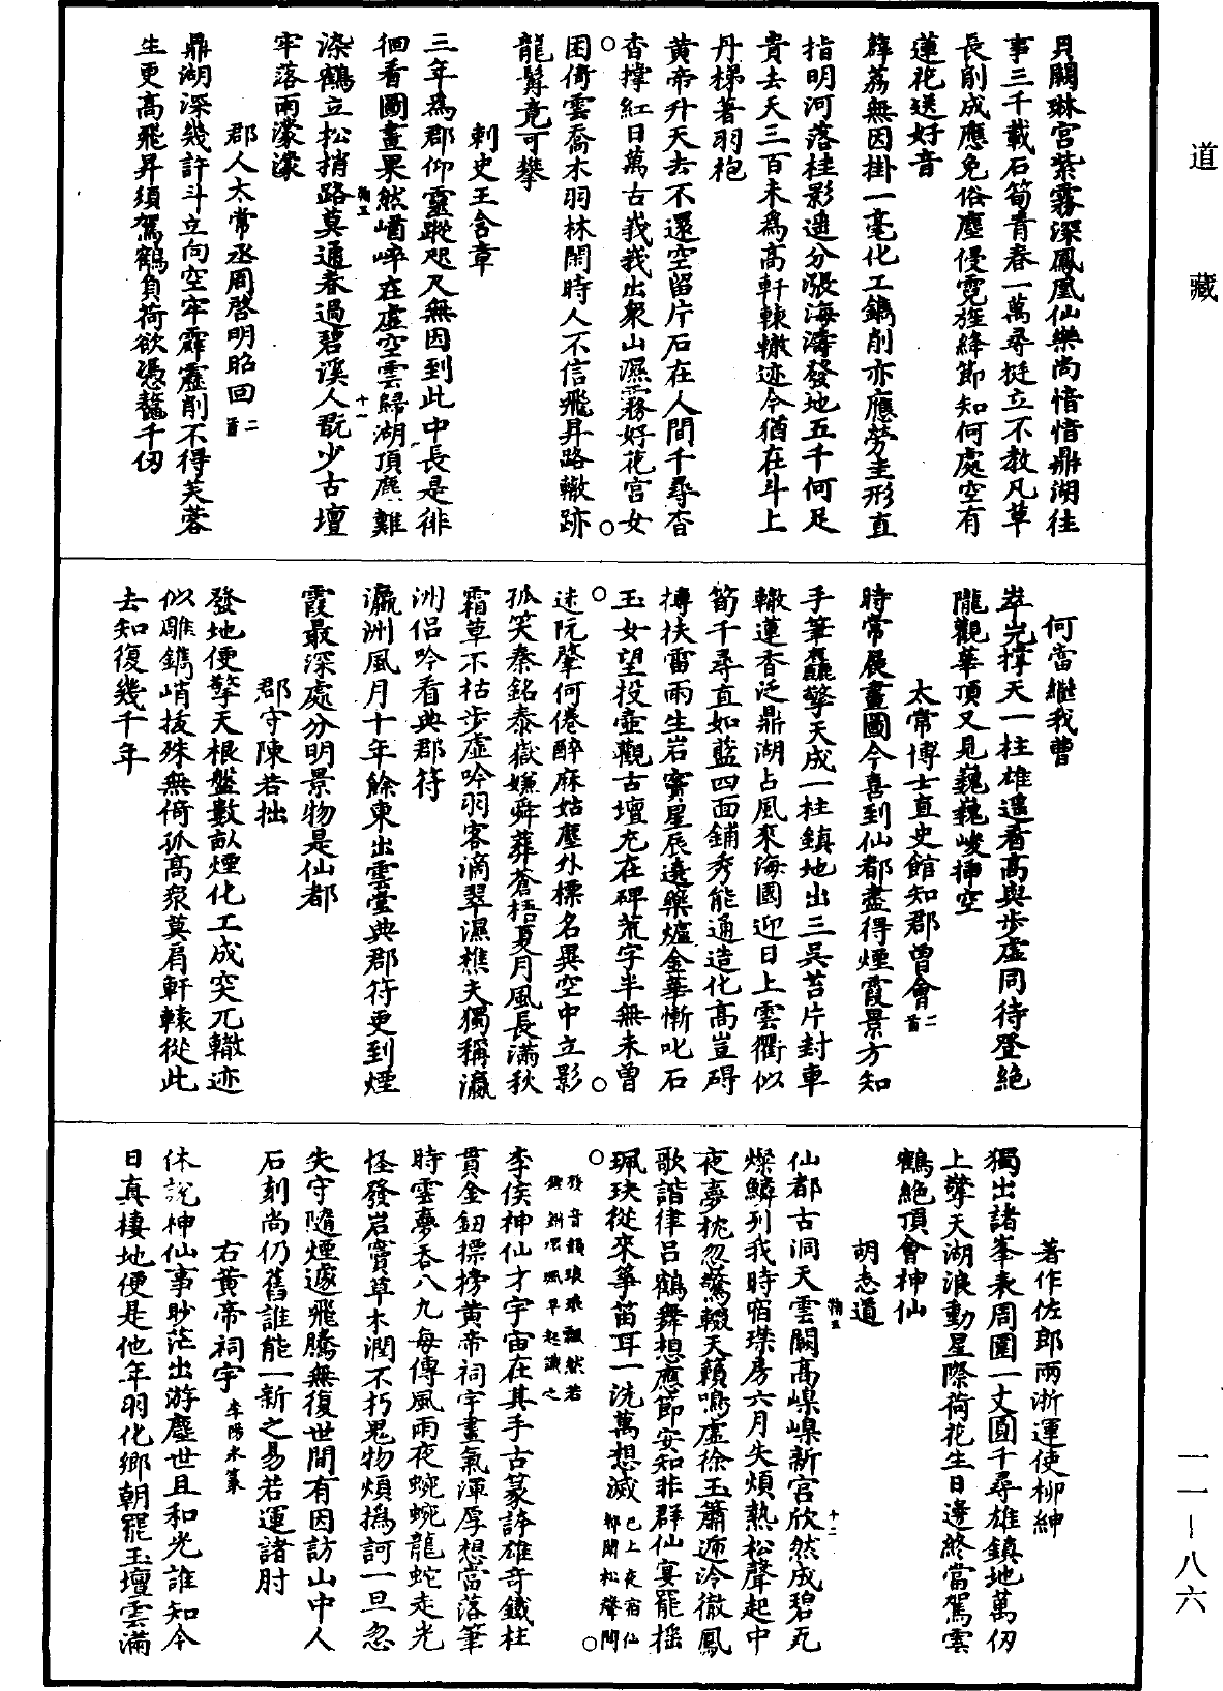 道藏
貝闕琳宮紫霧深鳳凰仙樂尚愔愔鼎湖往
事三千載石筍青春一萬尋挺立不教凡草
長削成應免俗塵侵霓旌絳節知何處空有
蓮花送好音
薜荔無因掛一毫化工鐫削亦應勞圭形直
指明河落桂影遙分漲海濤發地五千何足
貴去天三百未為高軒轅轍迹今猶在斗上
丹梯著羽袍
黃帝升天去不還空留片石在人間千尋杳
杳撐紅日萬古峩峩出衆山濕霧好花宮女
困倚雲喬木羽林閑時人不信飛昇路轍跡
龍髯竟可攀
刺史王含章
三年爲郡仰靈蹤咫尺無因到此中長是徘
徊看圖畫果然崷崒在虛空雲歸湖頂塵難
染鶴立松梢路莫通春過碧溪人翫少古壇
牢落雨濛濛
郡人太常丞周啓明昭回二首
鼎湖深幾許斗立向空牢霹靂削不得芙蓉
生更高飛昇須駕鶴負荷欲憑鼇千仞
何當繼我曹
崒屼撑天一柱雄遥看高與步虛同待登絶
隴觀華頂又見巍巍峻挿空
太常博士直史館知郡曾會二首
時常展畫圖今喜到仙都盡得煙霞景方知
手筆麤擎天成一柱鎮地出三吳苔片封車
轍蓮香泛鼎湖占風來海國迎日上雲衢似
筍千尋直如藍四面鋪秀能通造化高豈碍
摶扶雷雨生岩竇星辰遶藥爐金華慚叱石
玉女望投壺觀古壇充在碑荒字半無未曽
迷阮肇何倦醉麻姑塵外標名異空中立影
孤笑秦銘泰嶽嫌舜葬蒼梧夏月風長滿秋
霜草不枯步虛吟羽客滴翠濕樵夫獨稱瀛
洲侶吟看典郡符
瀛洲風月十年餘東出雲臺典郡符更到煙
霞最深處分明景物是仙都
郡守陳若拙
發地便擎天根盤數畝煙化工成突兀轍迹
似雕鐫峭拔殊無倚孤高衆莫肩軒轅從此
去知復幾千年
著作佐郎兩浙運使柳紳
獨出諸峯表周圍一丈圓千尋雄鎮地萬仞
上擎天湖浪動星際荷花生日邊終當駕雲
鶴絶頂會神仙
胡志道
仙都古洞天雲闕高㠝㠝新宮欣然成碧瓦
燦鱗列我時宿璨房六月失煩熱松聲起中
夜夢枕忽驚輟天籟鳴虛徐玉簫遞泠徹鳳
歌諧律呂鶴舞想應節安知非群仙宴罷摇
珮玦從來箏笛耳一洗萬想滅已上夜宿仙都聞松聲間
李侯神仙才宇宙在其手古篆誇雄奇鐵柱
貫金鈕摽榜黃帝祠宇畫氣渾厚想當落筆
時雲夢吞八九每傳風雨夜蜿蜿龍蛇走光
怪發岩竇草木潤不朽鬼物煩撝訶一旦忽
失守隨煙遽飛騰無復世間有因訪山中人
石刻尚仍舊誰能一新之易若運諸肘
右黃帝祠宇李陽氷篆
休說神仙事眇茫出游塵世且和光誰知今
日真棲地便是他年羽化鄉朝罷玉壇雲滿
一一—八六